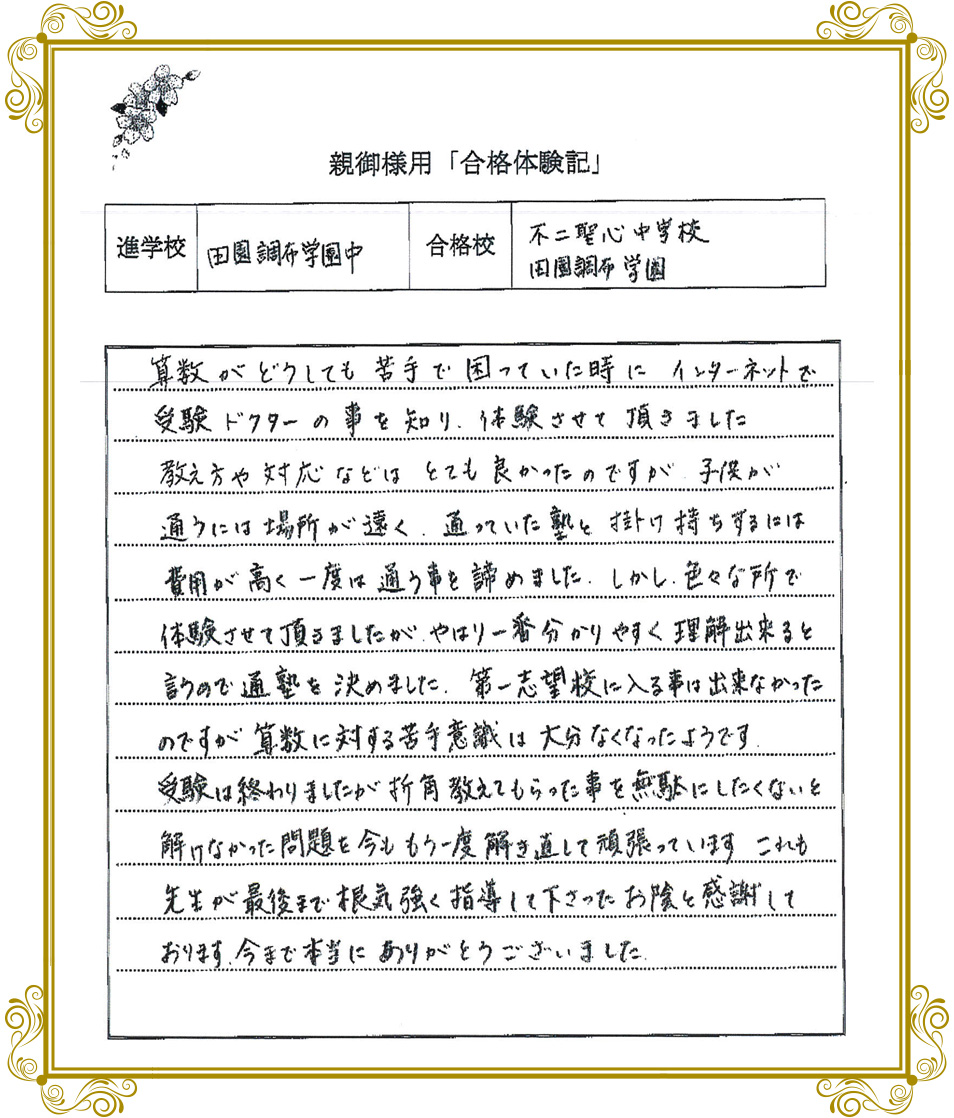 親御様用「合格体験記」
進学校 田園調布学園中 合格校 不二聖心中学校
田園調布学園
算数がどうしても苦手で困っていた時に インターネットで
受験ドクターの事を知り、体験させて頂きました
教え方や対応などは とても良かったのですが、子供が
通うには場所が遠く、通っていた塾と掛け持ちするには
費用が高く一度は通う事を諦めました、しかし、色々な所で
体験させて頂きましたが、やはり一番分かりやすく理解出来ると
言うので通塾を決めました、第一志望校に入る事は出来なかった
のですが算数に対する苦手意識は大分なくなったようです、
受験は終わりましたが折角教えてもらった事を無駄にしたくないと
解けなかった問題を今ももう一度解き直して頑張っています これも
先生が最後まで根気強く指導して下さったお陰と感謝して
おります、今まで本当にありがとうございました、